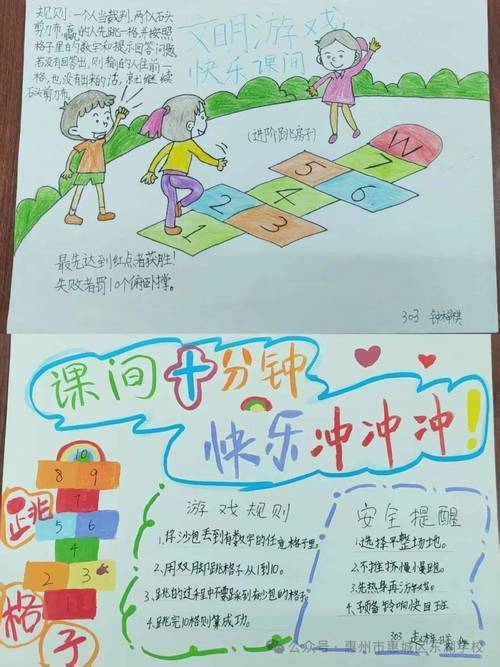 规则:一个人当裁判,两个石头
剪刀布,赢的人先跳一格并按照
格子里的数字和提示回答问题
若没有回答出,则输的人往前一
格,也没有出来的话,
石头剪刀布。
文明游戏
快乐课间
(进阶跳房子)
W
7
5
6
4
2
3
1
最先达到红点者获胜!
失败者罚10个俯卧撑。
303
课间十分钟
快乐冲冲冲!
10
8 9
7
5 6
4
2 3
1
跳
格
子
游戏规则
1.将沙包丢到有数字的任意格子里。
2.用双脚跳格子从1到10。
3.跳的过程中不要踩到有沙包的格子。
4.跳完10格则算成功。
安全提醒
1.选择平整场地。
2.不推挤慢慢跑。
3.先热身再游戏。
4.预备铃响快回班
303
公众号·惠州市惠城区东湖学校